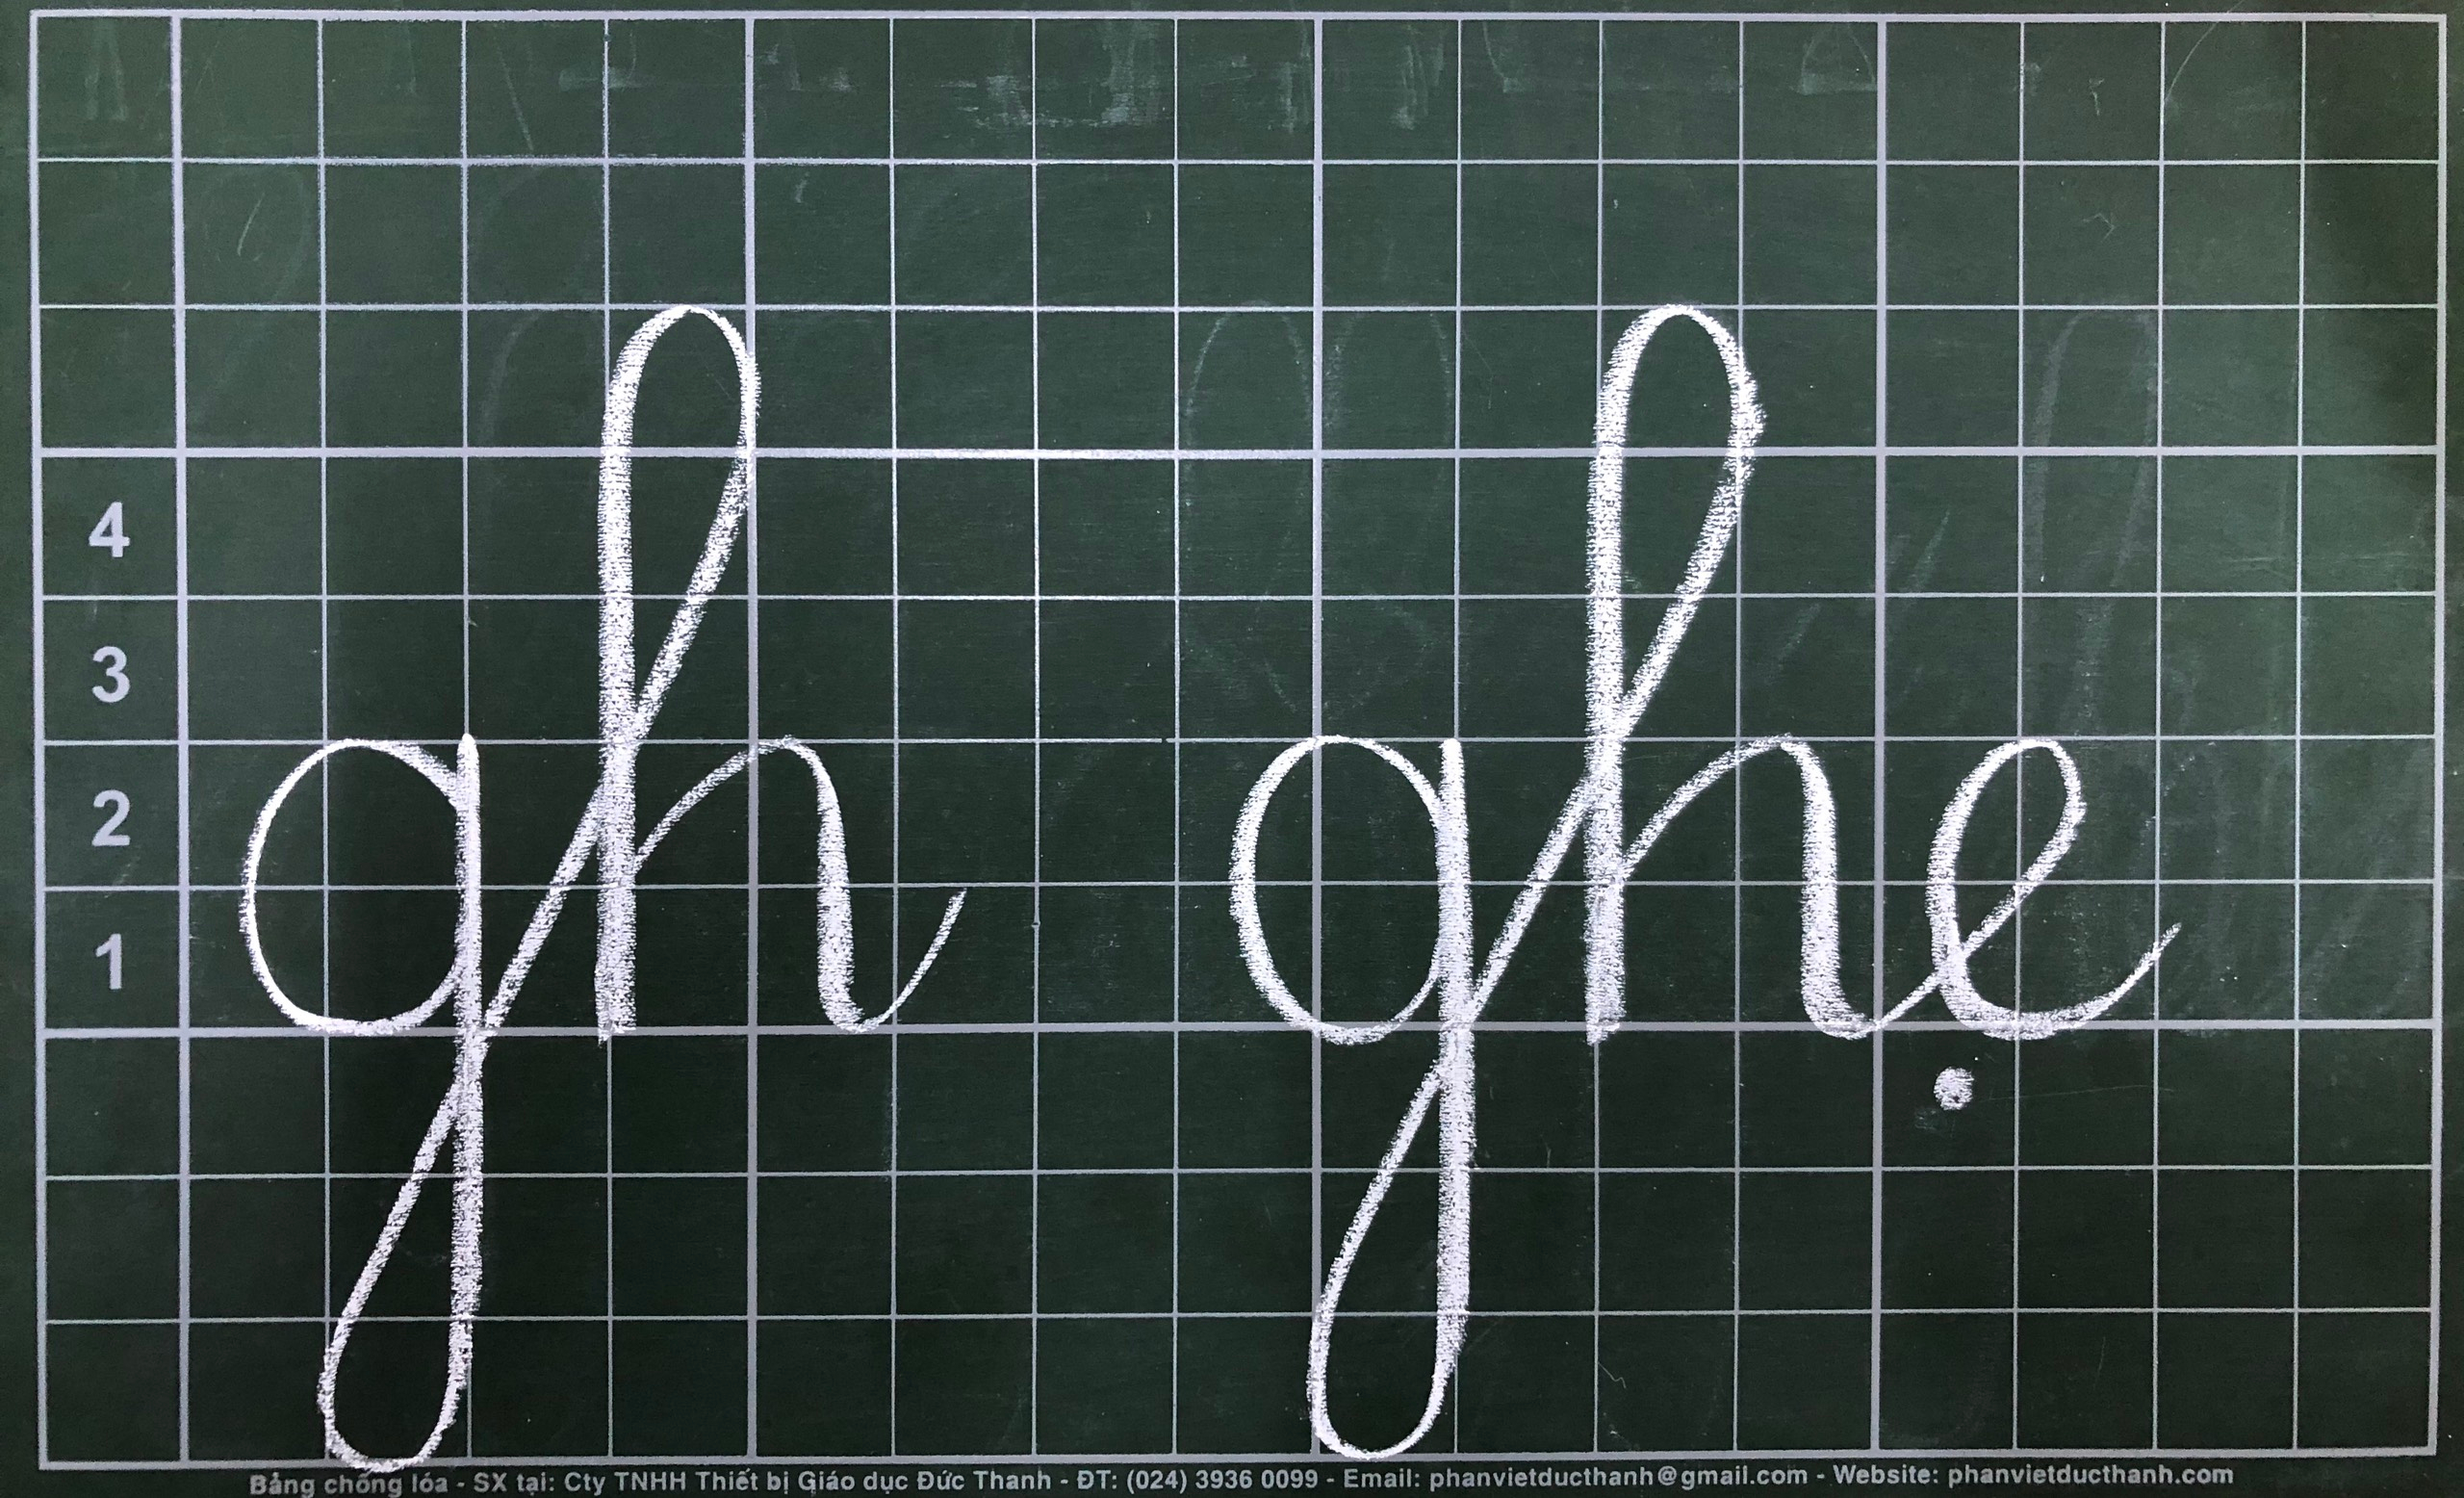 4
3
2
1
gh ghẹ
Bảng chống lóa - SX tại: Cty TNHH Thiết bị Giáo dục Đức Thanh - ĐT: (024) 3936 0099 - Email: phanvietducthanh@gmail.com - Website: phanvietducthanh.com